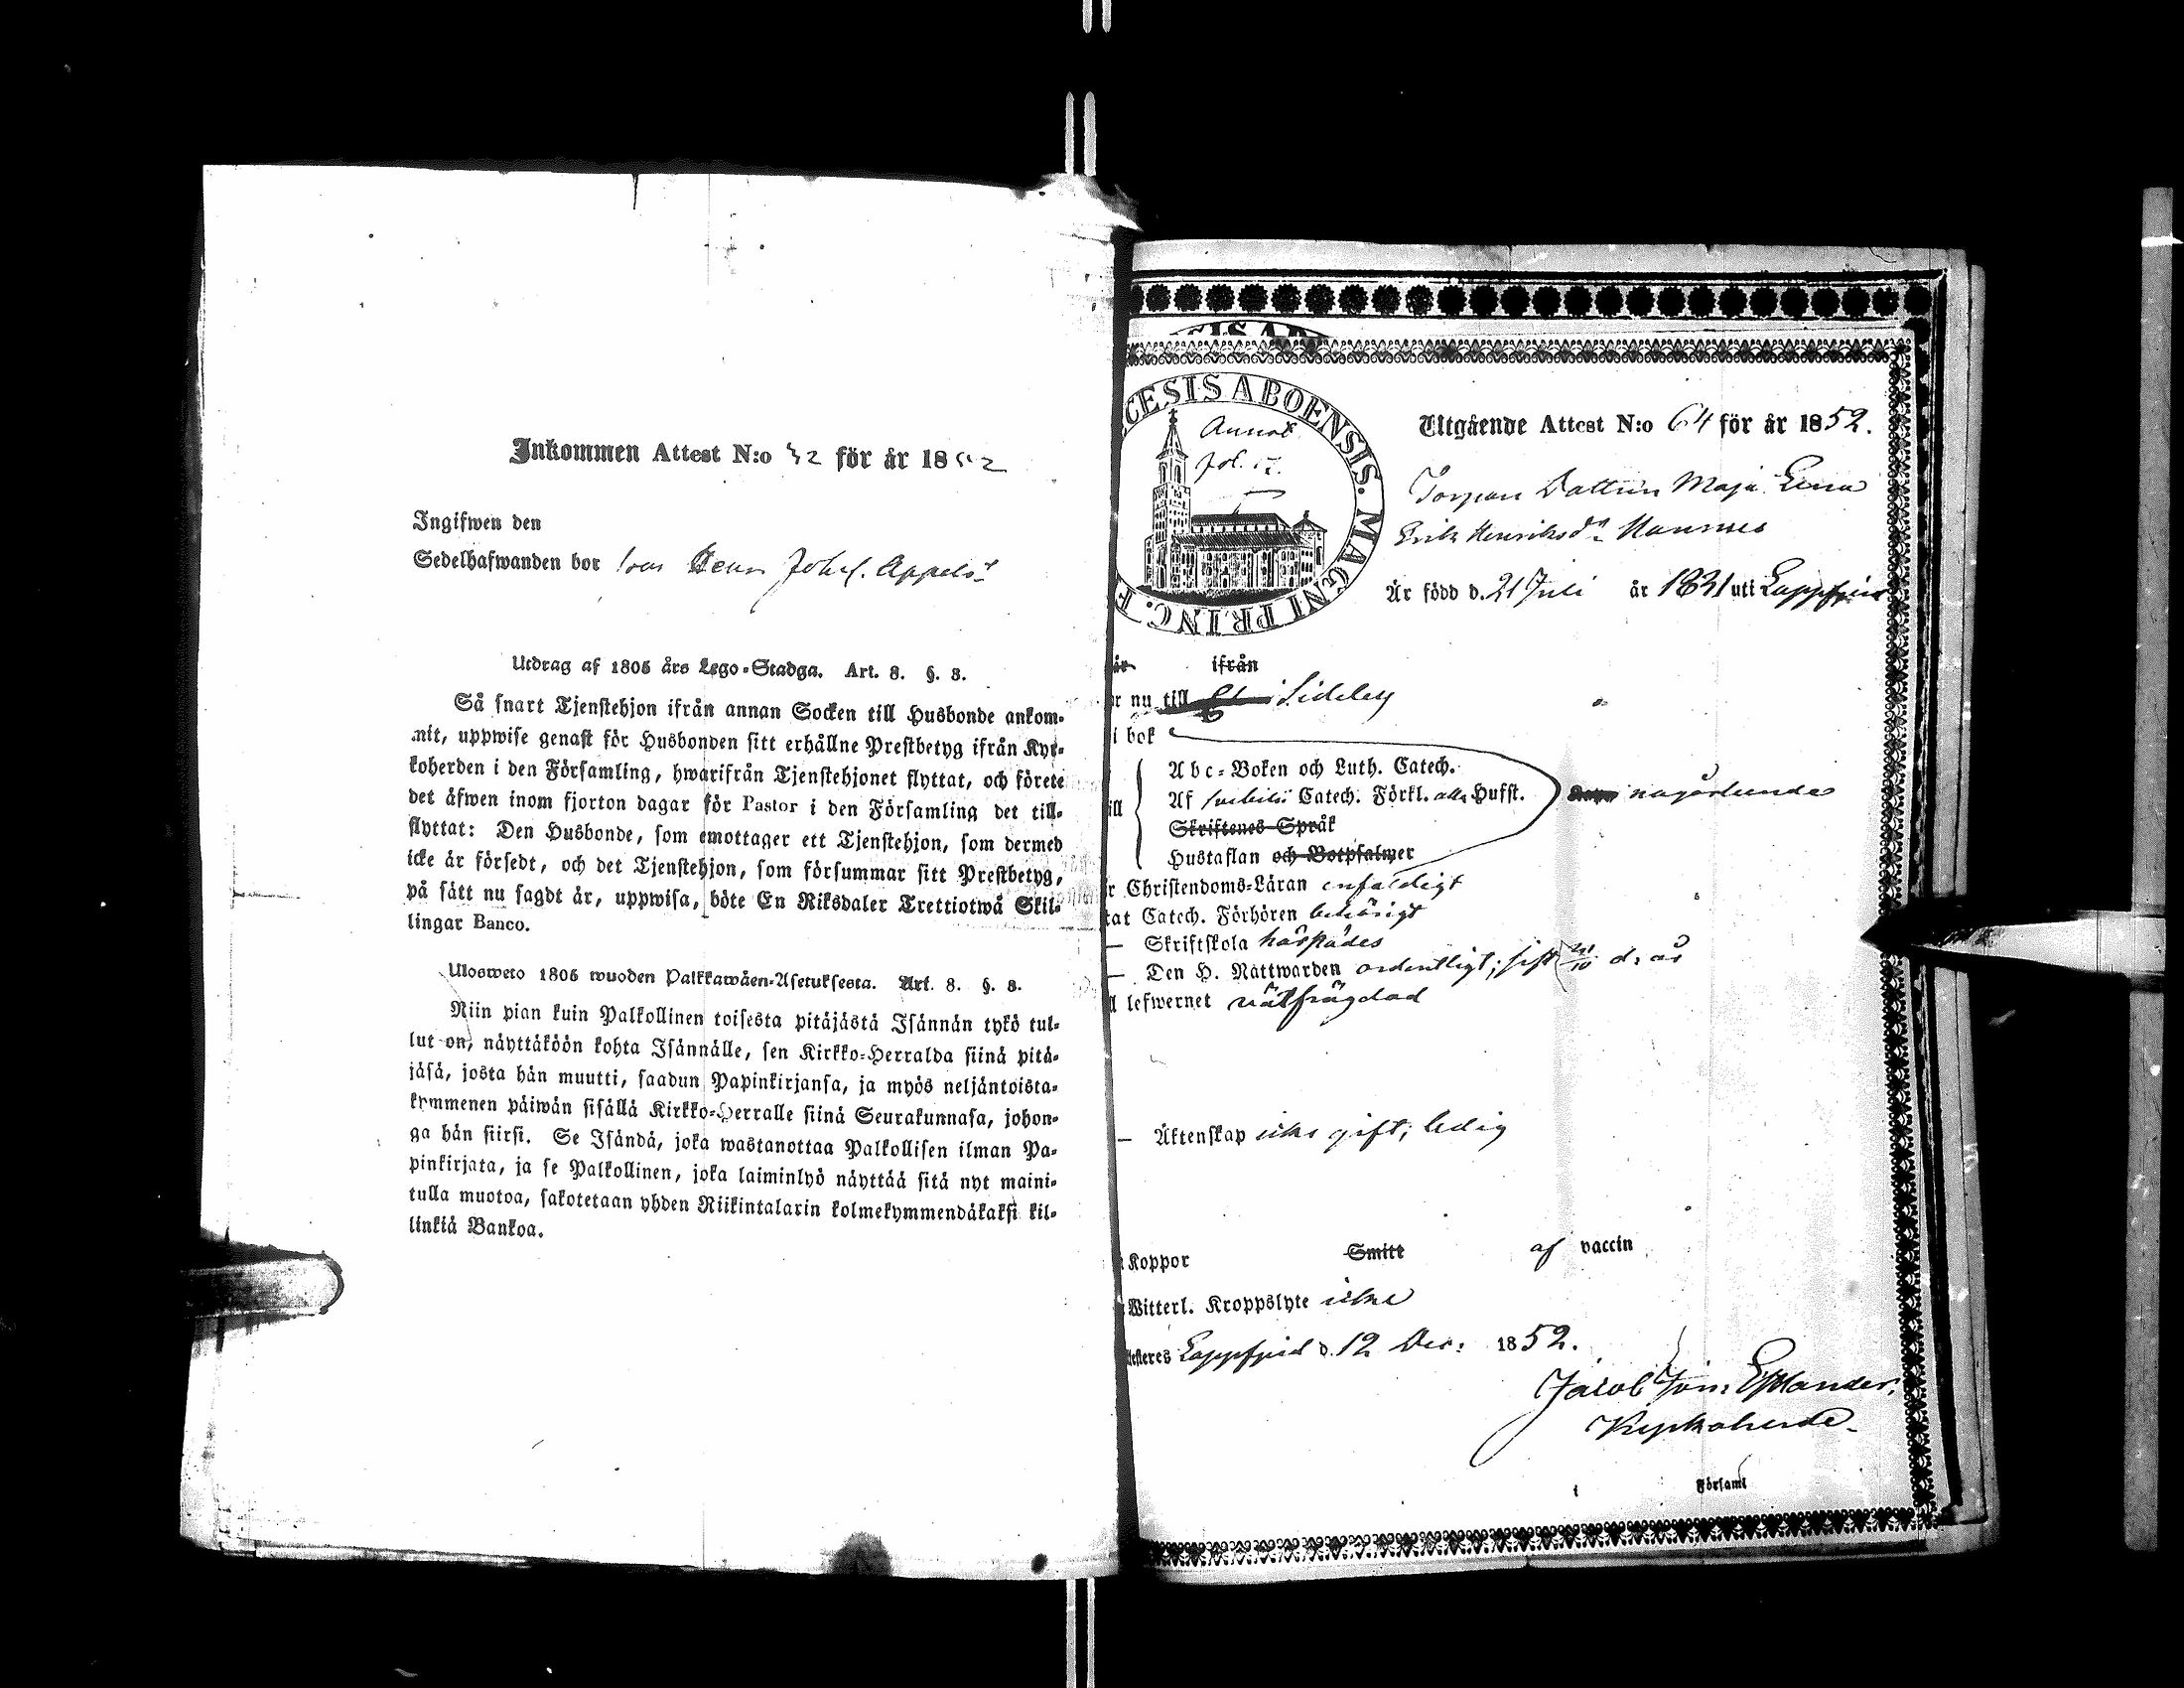 Inkommen Attest N:o 32 för år 1852
Ingifwen den
Sedelhafwanden bor hos Henr Johs. Appels
Utdrag af 1805 års Lego-Stadga. Art. 8. §. 8.
Så snart Tjenstehjon ifrån annan Socken till Husbonde ankom-
mit, uppwise genast för Husbonden sitt erhållne Prestbetyg ifrån Kyr-
koherden i den Församling, hwarifrån Tjenstehjonet flyttat, och förete
det äfwen inom fjorton dagar för Pastor i den Församling det till-
flyttat: Den Husbonde, som emottager ett Tjenstehjon, som dermed
icke är försedt, och det Tjenstehjon, som försummar sitt Prestbetyg,
på sätt nu sagdt är, uppwisa, böte En Riksdaler Trettiotwå Skil-
lingar Banco.
Ulosweto 1805 wuoden Palkkawäen-Asetuksesta. Art. 8. §. 8.
Niin pian kuin Palkollinen toisesta pitäjästä Isännän tykö tul-
lut on, näyttäköön kohta Isännälle, sen Kirkko-Herralda siinä pitä-
jäsä, josta hän muutti, saadun Papinkirjansa, ja myös neljäntoista-
kymmenen päiwän sisällä Kirkko-Herralle siinä Seurakunnasa, johon-
ga hän siirsi. Se Isändä, joka wastanottaa Palkollisen ilman Pa-
pinkirjata, ja se Palkollinen, joka laiminlyö näyttää sitä nyt maini-
tulla muotoa, sakotetaan yhden Riikintalarin kolmekymmendäkaksi kil-
linkiä Bankoa.
CESIS ABOENSIS. MAGNI PRINC. F
Annot
fol.
Utgående Attest N:o 64 för år 1852.
Torpare Dottren Maja Lena
Erik Henriksdr Hannus
Är född d. 21 Juli år 1831 uti Lappfjerd
är ifrån
r nu till Sideby
i bok
Abc-Boken och Luth. Catech.
Af Catech. Förkl. Hufst. någorlunda
ill
Skriftenes Språk
Hustaflan och Botpsalmer
r Christendoms-Läran enfaldigt
tat Catech. Förhören behörigt
— Skriftskola härstädes
— Den H. Nattwarden ordentligt; sist 31/10 d. år
l lefwernet välfrägdad
— Äktenskap icke gift; ledig
Koppor Smitt af vaccin
Witterl. Kroppslyte icke
testeres Lappfjerd d. 12 Dec: 1852.
Jacob Joh. Estlander,
Kyrkoherde
Förſaml